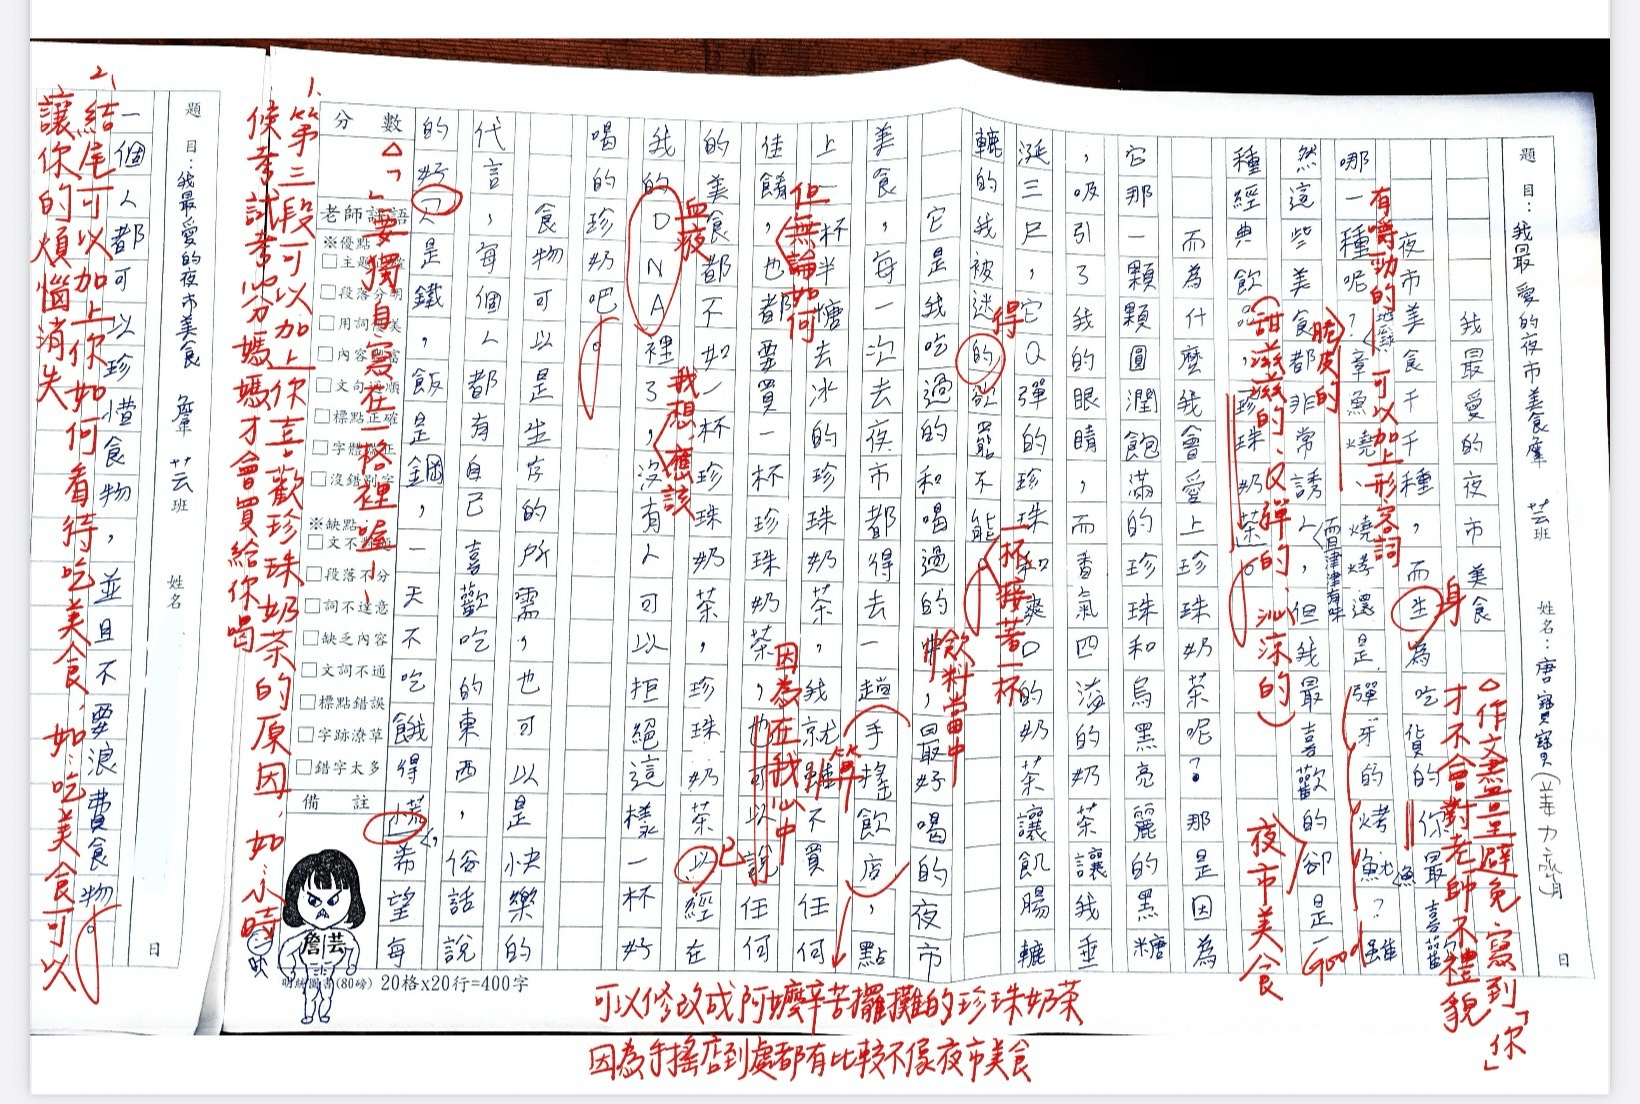 題目：我最愛的夜市美食 羣芸班 姓名：唐寶寶(姜力齊月
日
我最愛的夜市美食
夜市美食千千種，而生為吃貨的你最喜
哪一種呢？章魚燒、燒烤還是彈牙的烤魷魚？雖
然這些美食都非常誘人，但我最喜歡的卻是一
種經典飲品，珍珠奶茶。
而為什麼我會愛上珍珠奶茶呢？那是因為
它那一顆顆圓潤飽滿的珍珠和烏黑亮麗的黑糖
，吸引了我的眼睛，而香氣四溢的奶茶讓我垂
涎三尺，它Q彈的珍珠和爽口的奶茶讓飢腸轆
轆的我被迷的欲罷不能。
它是我吃過的和喝過的，最好喝的夜市
美食，每一次去夜市都得去一趟手搖飲店，點
上一杯半糖去冰的珍珠奶茶，我就雖不買任何
佳餚，也都要買一杯珍珠奶茶，也可以說任何
的美食都不如一杯珍珠奶茶，珍珠奶茶以經在
我的DNA裡了，沒有人可以拒絕這樣一杯好
喝的珍奶吧。
食物可以是生存的所需，也可以是快樂的
代言，每個人都有自己喜歡吃的東西，俗話說
的好人是鐵，飯是鋼，一天不吃餓得慌，希望每
分數
老師評語
※優點
主題正確
段落分明
用詞優美
內容豐富
文句通順
標點正確
字體端正
沒錯別字
※缺點
文不對題
段落不分
詞不達意
缺乏內容
文詞不通
標點錯誤
字跡潦草
錯字太多
備註
詹芸
(80磅) 20格x20行=400字
題目：我最愛的夜市美食 羣芸班 姓名
日
一個人都可以珍惜食物，並且不要浪費食物。
△作文盡量避免寫到「你」
才不會對老師不禮貌
身
有嚼勁的
可以加上形容詞
而且津津有味
脆皮的
Good
夜市美食
(甜滋滋的、Q彈的、沁涼的)
得
一杯接著一杯
飲料當中
算
但無論如何
因為在我心中
血液
已
我想，應該
△「」要獨自寫在一格裡喔！
可以修改成阿嬤辛苦擺攤的珍珠奶茶
因為手搖店到處都有比較不像夜市美食
1、第三段可以加上你喜歡珍珠奶茶的原因，如：小時
候考試考100分媽媽才會買給你喝
2、結尾可以加上你如何看待吃美食，如：吃美食可以
讓你的煩惱消失